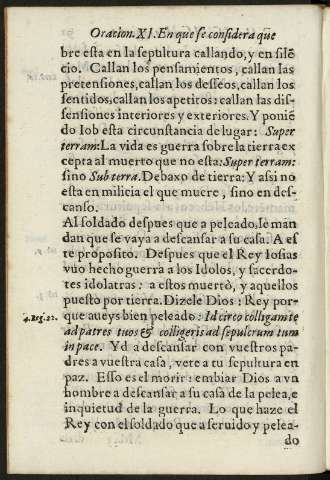 Oracion. XI. En que se considera que
bre esta en la sepultura callando, y en silē
cio. Callan los pensamientos, callan las
pretensiones, callan los desseos, callan los
sentidos, callan los apetitos: callan las dis-
sensiones interiores y exteriores. Y poniē
do Iob esta circunstancia de lugar: Super
terram: La vida es guerra sobre la tierra ex
cepta al muerto que no esta: Super terram:
sino Sub terra. Debaxo de tierra: Y assi no
esta en milicia el que muere, sino en des-
canso.
Al soldado despues que a peleado, le man
dan que se vaya a descansar a su casa. A es
te proposito. Despues que el Rey Iosias
vuo hecho guerra a los Idolos, y sacerdo-
tes idolatras: a estos muertò, y aquellos
puesto por tierra. Dizele Dios: Rey por-
4. Reg. 22.
que aueys bien peleado: Id circo colligam te
ad patres tuos & colligeris ad sepulcrum tum
in pace. Yd a descansar con vuestros pa-
dres a vuestra casa, vete a tu sepultura en
paz. Esso es el morir: embiar Dios a vn
hombre a descansar a su casa de la pelea, e
inquietud de la guerra. Lo que haze el
Rey con el soldado que a seruido y pelea-
do